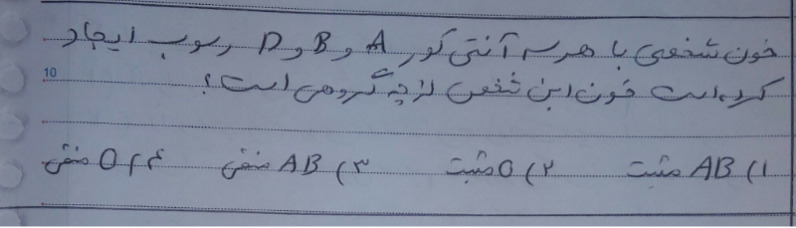 خون شخصی با هر سه آنتی کور A و B و D رسوب ایجاد
10
کرده است خون این شخص از چه گروهی است؟
۱) AB مثبت ۲) O مثبت ۳) AB منفی ۴) O منفی